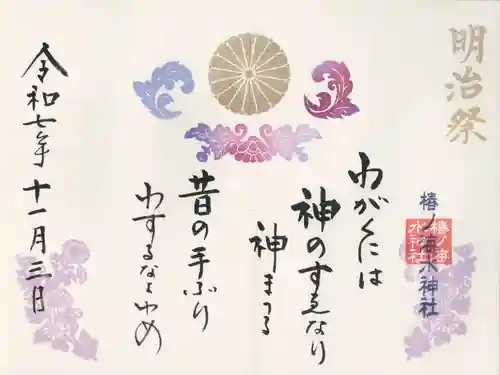 明治祭
椿ノ海水神社
椿ノ海
水神社
わがくには
神のすゑなり
神まつる
昔の手ぶり
わするなよゆめ
令和七年十一月三日